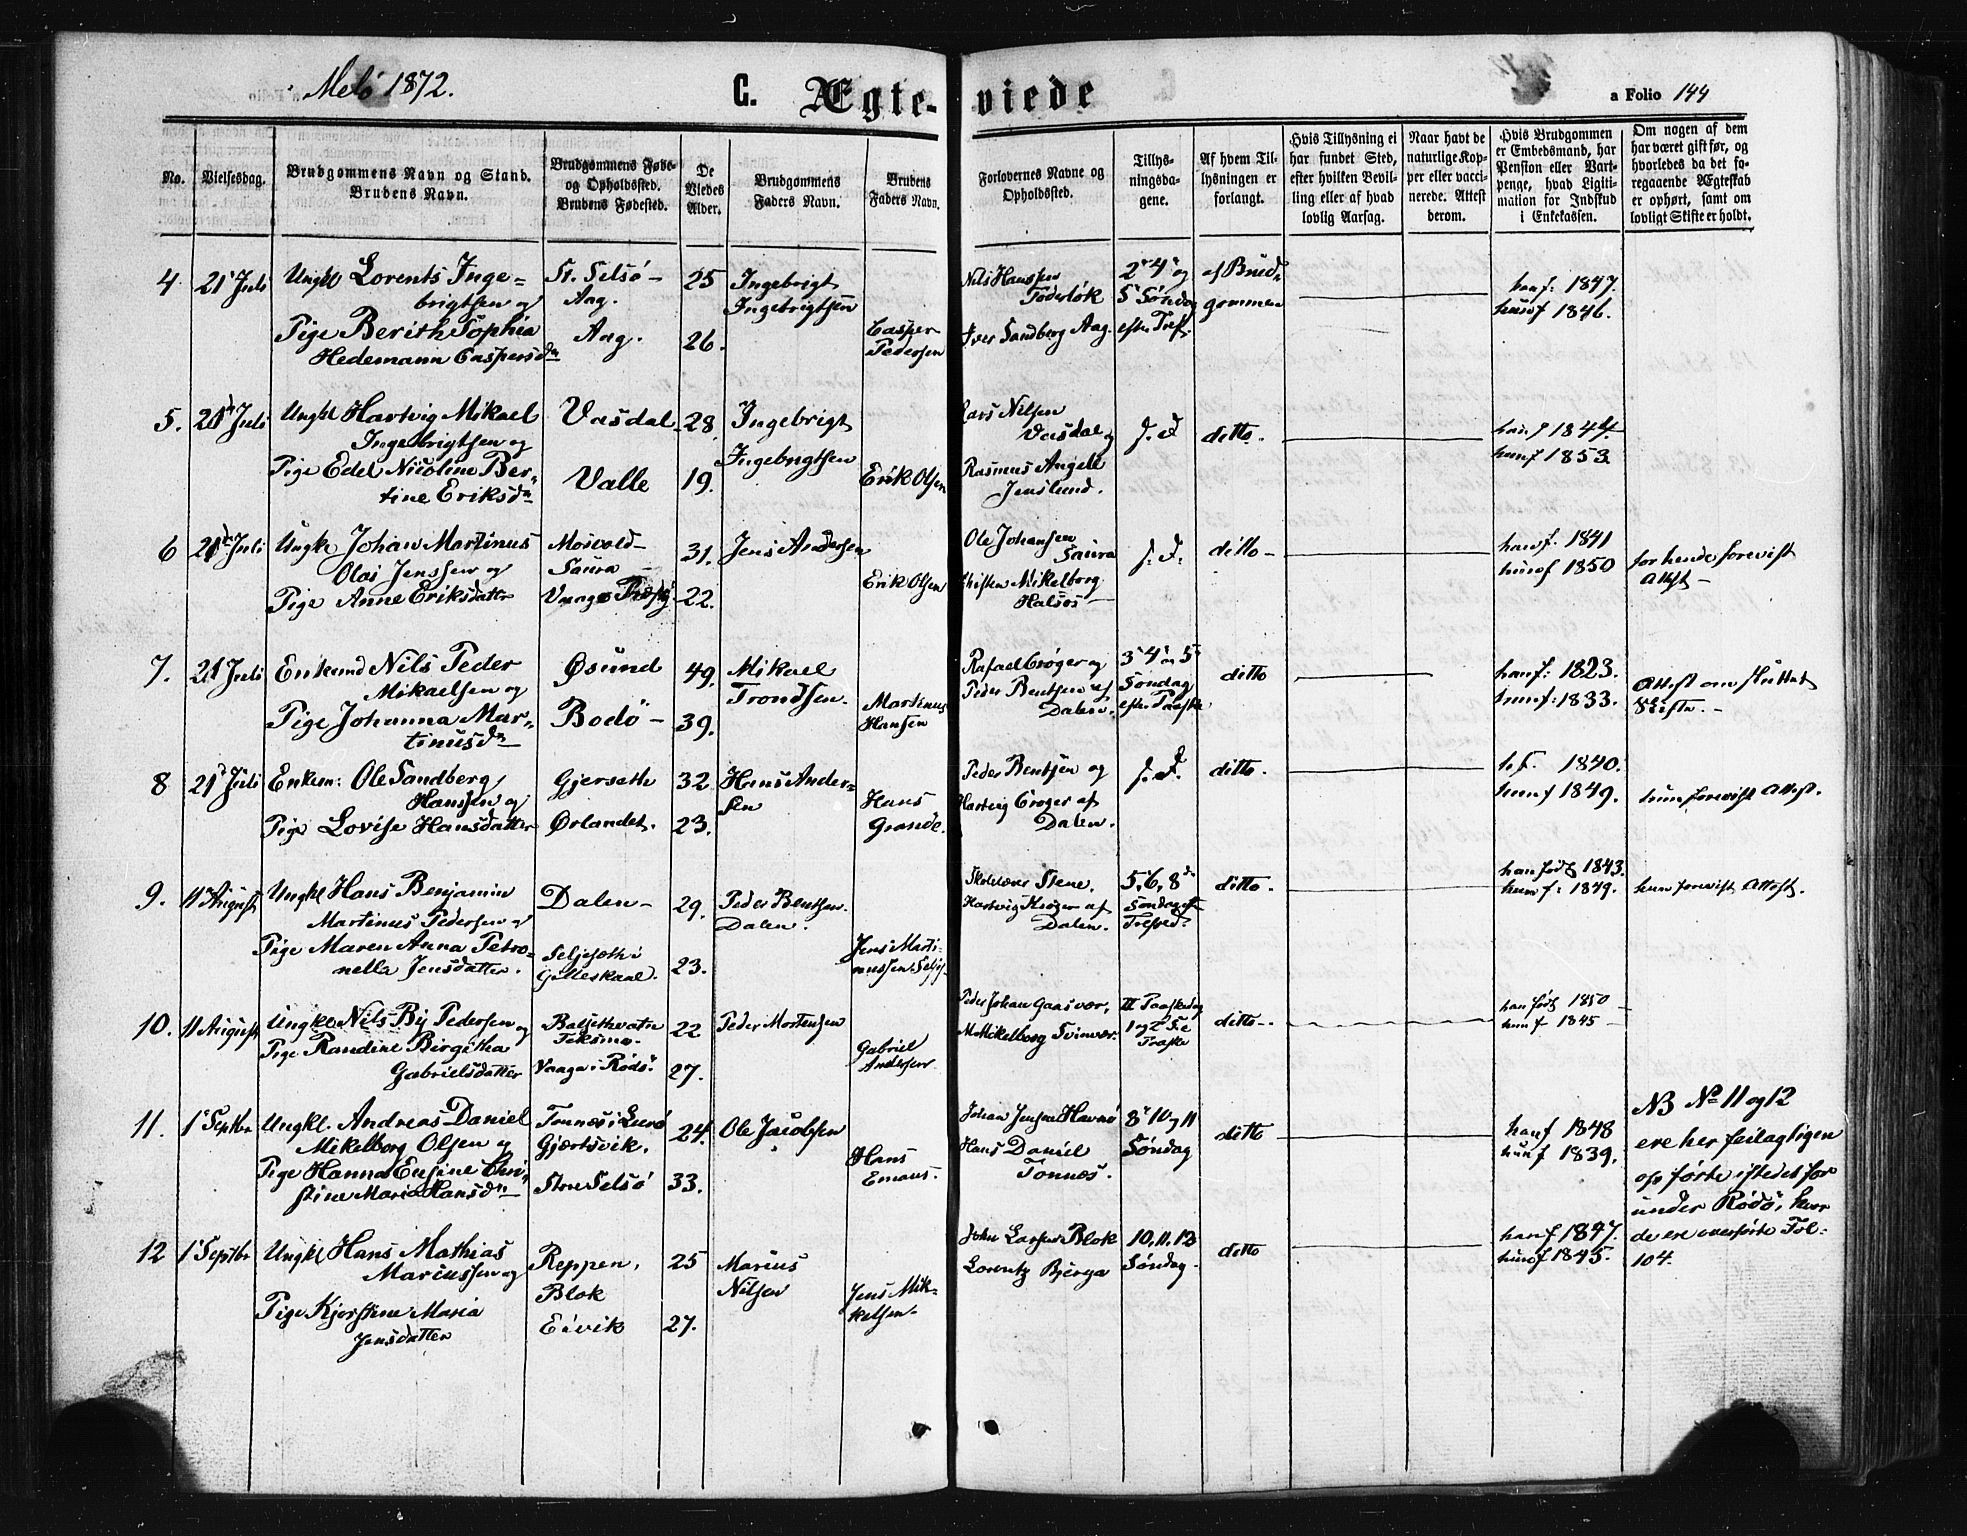 Melö 1872.
C. Ægte-viede
a Folio 144
No.
Vielsesdag.
Brudgommens Navn og Stand.
Brudens Navn.
Brudgommens Føde-
og Opholdssted.
Brudens Fødested.
De
Viedes
Alder.
Brudgommens
Faders Navn.
Brudens
Faders Navn.
Forlovernes Navne og
Opholdssted.
Tillys-
ningsda-
gene.
Af hvem Til-
lysningen er
forlangt.
Hvis Tillysning ei
har fundet Sted,
efter hvilken Bevil-
ling eller af hvad
lovlig Aarsag.
Naar havt de
naturlige Kop-
per eller vacci-
nerede. Attest
derom.
Hvis Brudgommen
er Embedsmand, har
Pension eller Vart-
penge, hvad Ligiti-
mation for Indskud
i Enkekassen.
Om nogen af dem
har været gift før, og
hvorledes da det fo-
regaaende Ægteskab
er ophørt, samt om
lovligt Skifte er holdt.
4 21 Juli
Ungkl Lorents Inge-
brigtsen og
Pige Berith Sophia
Hedemann Caspersdn
St. Selsö -
Aag.
Aag.
25
26.
Ingebrigt
Ingebrigtsen
Casper
Pedersen
Nils Hanssen
Iver Sandberg Aag.
2 4 og
5 Söndag
efter Tref.
af Brud-
gommen
han f. 1847.
hun f 1846.
5. 21 Juli
Ungkl Hartvig Mikael
Ingebrigtsen og
Pige Edel Nicoline Ber-
tine Eriksdn
Vasdal
Valle
28
19.
Ingebrigt
Ingebrigtsen
Erik Olsen
Lars Nilsen
Vasdal og
Rasmus Angell
Jenslund.
ditto.
han f 1844.
hun f 1853
6 21 Juli
Ungkl Johan Martinus
Olai Jenssen og
Pige Anne Eriksdatter
Mosvold
Saura
31.
22.
Jens Andersen
Erik Olsen
Ole Johansen
Saura
Mikelborg
Halsos
ditto -
han f. 1841
hun f 1850
for hende forevist
Attest -
7. 21 Juli
Enkemd Nils Peder
Mikaelsen og
Pige Johanna Mar-
tinusdn
Øsund
Bodö -
49.
39.
Mikael
Trondsen.
Martinus
Hansen
Rafael Cröger og
Peder Bentsen af
Dalen.
3 4 og 5
Söndag
efter Paaske
ditto
han f: 1823.
hun f: 1833.
Attest om sluttet
Skifte. -
8 21 Juli
Enkem: Ole Sandberg
Hanssen og
Pige Lovise Hansdatter
Gjerseth
Ørlandet.
32
23.
Hans Ander-
sen
Hans
Grande.
Peder Bentsen og
Hartvig Cröger af
Dalen.
ditto.
h. f. 1840.
hun f 1849.
hun forevist Attest.
9. 11 August
Ungkl Hans Benjamin
Martinus Pedersen og
Pige Maren Anna Petro-
nella Jensdatter.
Dalen -
Seljeseth i
Gilleskaal.
29.
23.
Peder Bentsen
Dalen.
Jens Marti-
nussen
Stene.
Hartvig Kröger af
Dalen.
5, 6, 8
Söndag eft
Trefred.
ditto.
han födt 1843.
hun f: 1849.
hun forevist Attest.
10. 11 August
Ungkl Nils By Pedersen og
Pige Randine Birgitha
Gabrielsdatter
Vaaga i Rödö.
22
27.
Peder Mortensen
Gabriel
Andersen
Peder Johan Gaasvær,
Mikelborg Svinvær.
II Paaskedag
ditto.
han födt 1850
hun f 1845
11. 1 Septbr
Ungkl. Andreas Daniel
Mikelborg Olsen og
Pige Hanna Ensine Chri-
stine Maria Hansdn
Tonnes i Lurö
Gjærtsvik.
Store Selsö
24.
33.
Ole Jacobsen
Hans
Emaus.
Johan Jensen Havnö
Hans Daniel
Tonnes.
8 10 og 11
Söndag
ditto
han f 1848
hun f 1839.
NB No 11 og 12
ere her feilagtigen
opförte istedetfor
under Rödö, hvor
de ere overförte Fol-
104.
12 1 Septbr
Ungkl Hans Mathias
Mariussen og
Pige Kjerstine Maria
Jensdatter
Reppen,
Blok
Eivik
25
27.
Marius
Nilsen
Jens Mik-
kelsen.
John Larsen Blok
Lorentz Bjerga
10, 11, 12
Söndag.
ditto
han f 1847.
hun f 1845.